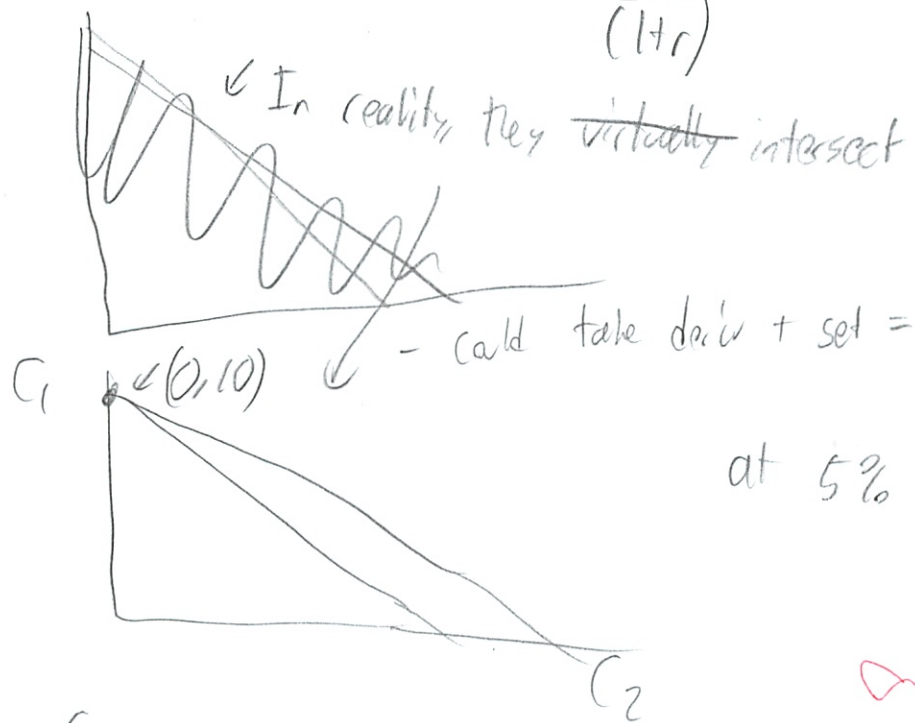 (1+r)
↙ In reality, they ~~virtually~~ intersect
- could take deriv + set =
C₁
↙(0,10)
at 5%
C₂